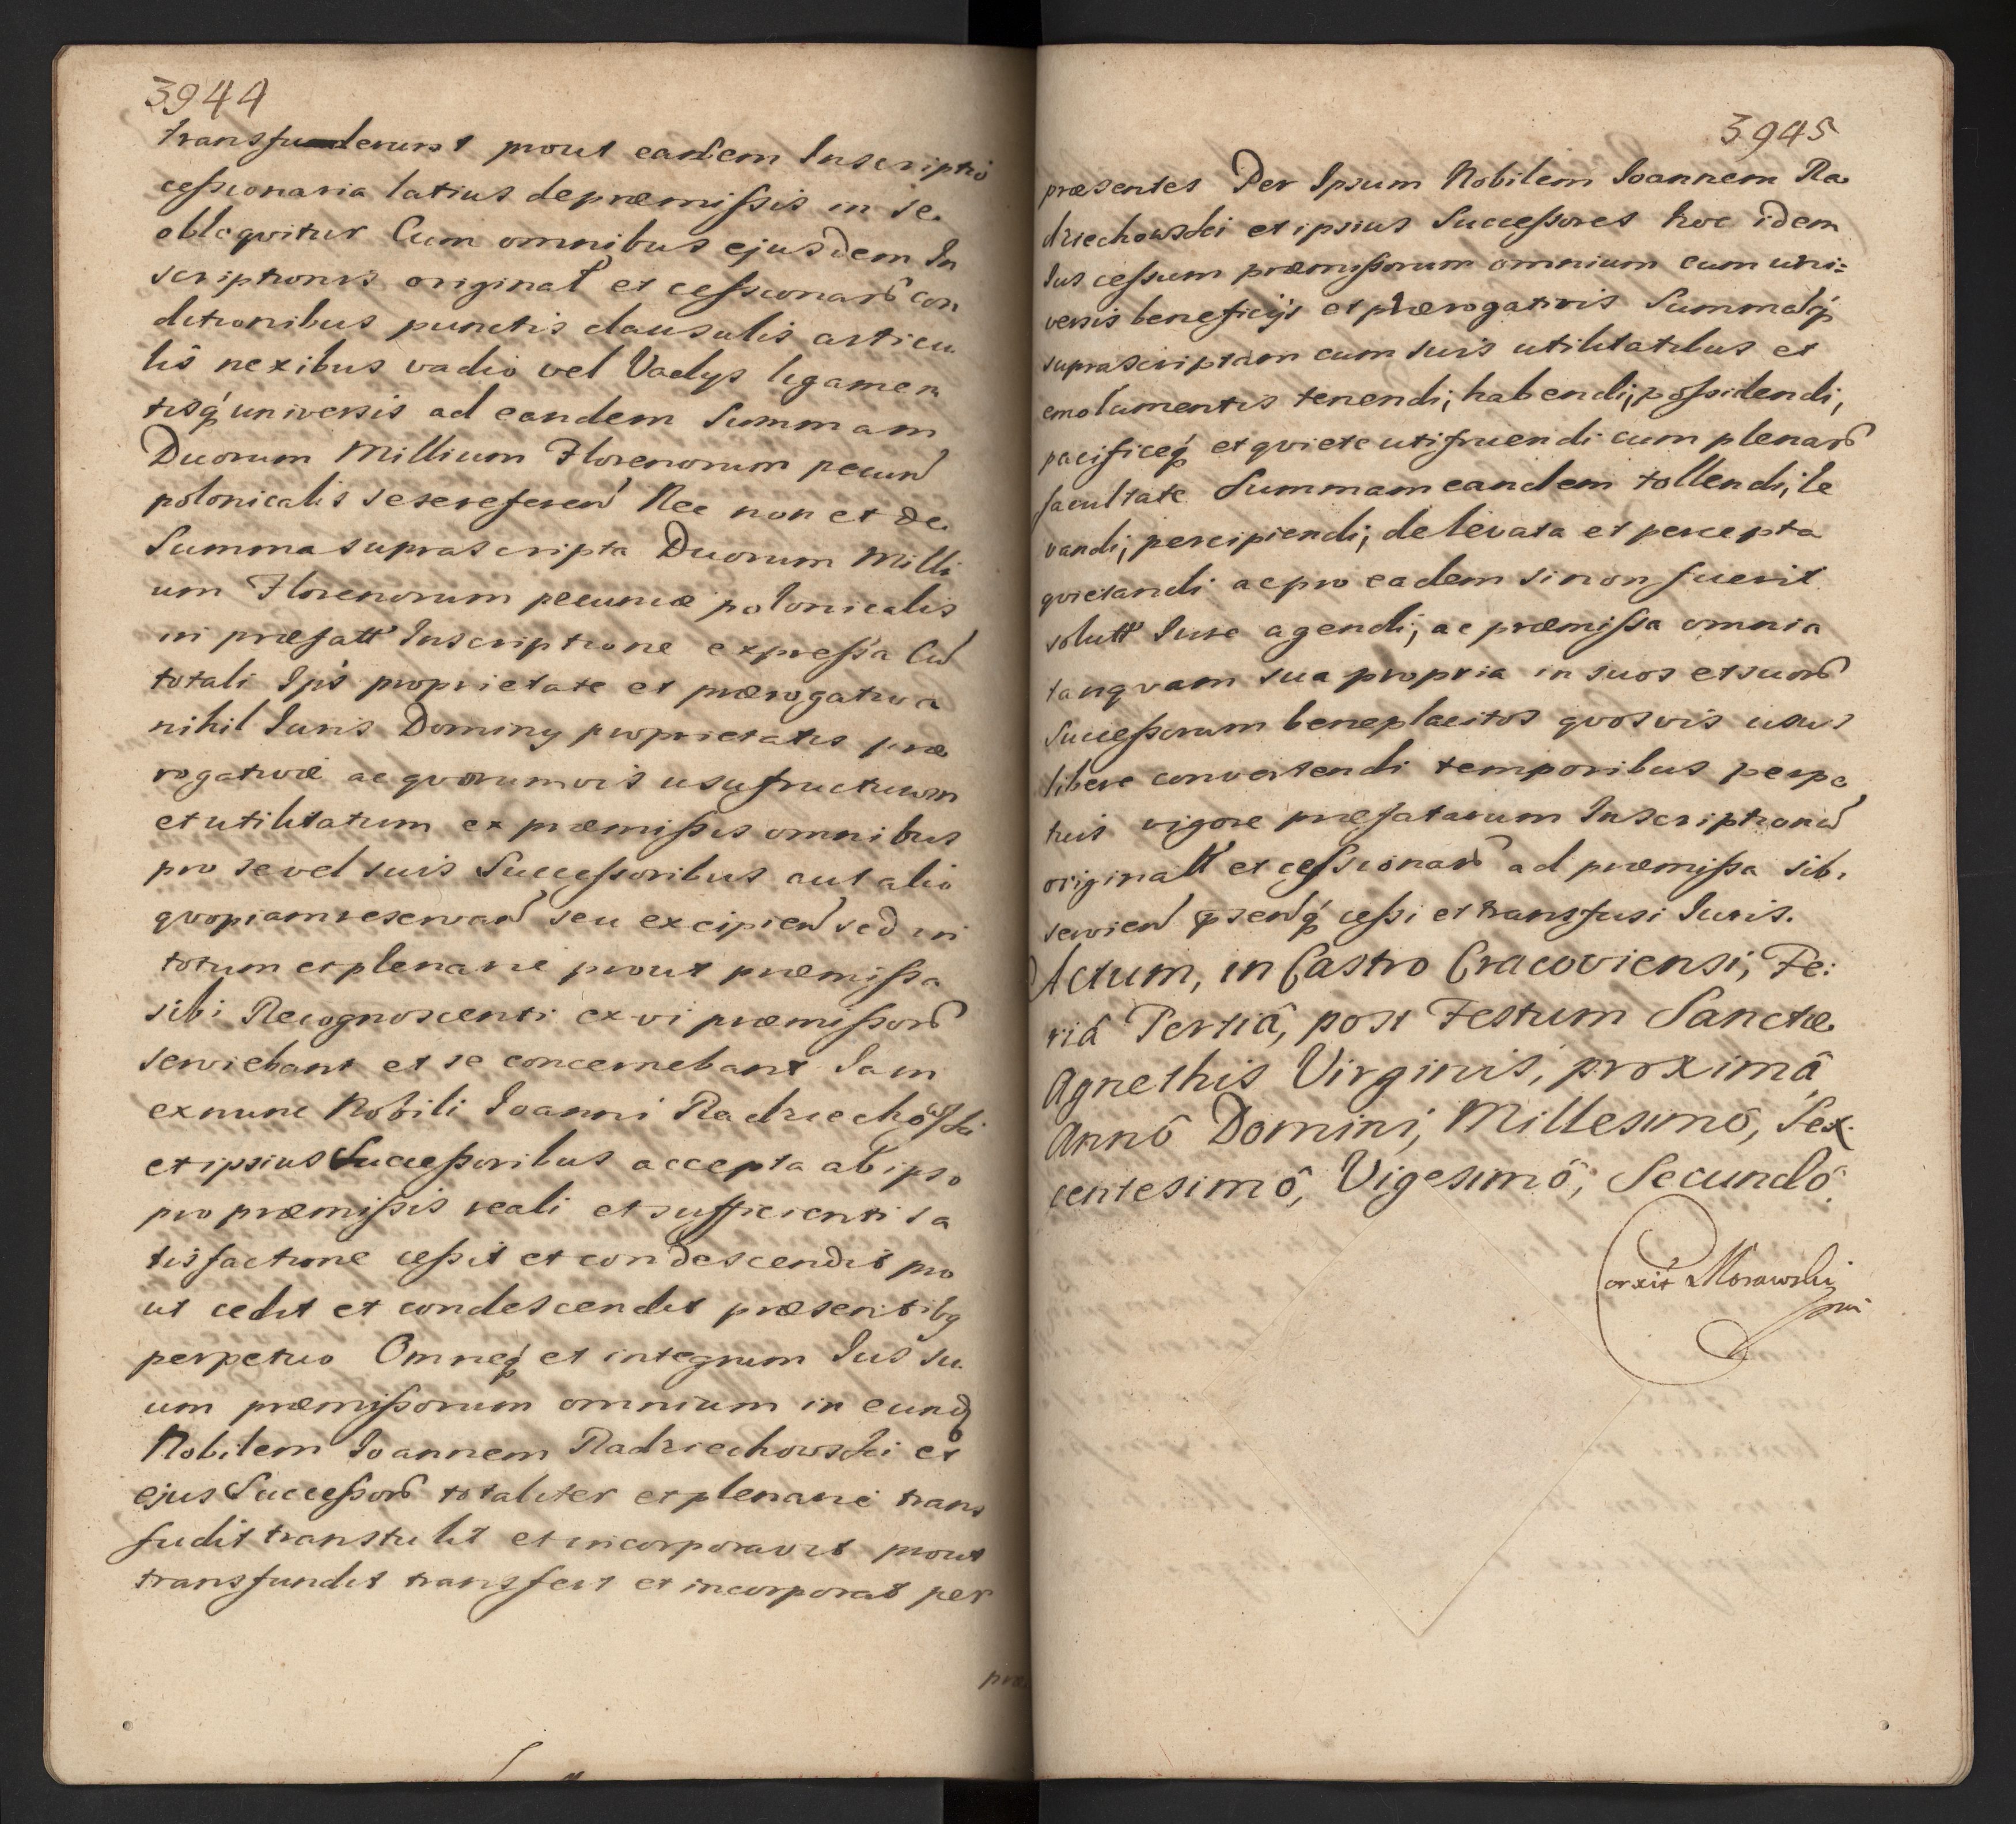 3944
transfuderunt prout eadem Inscriptio
cessionaria latius de præmissis in se
obloqvitur Cum omnibus ejusdem In
scriptionis original et cessionar con
ditionibus punctis clausulis articu
lis nexibus vadio vel Vadys ligamen
tisq universis ad eandem Summam
Duorum Millium Florenorum pecun
polonicalis sese referen Nec non et de
Summa suprascripta Duorum Milli
um Florenorum pecuniæ polonicalis
in præfatt Inscriptione expressa Cu
totali Ips proprietate et prærogativa
nihil Iuris Dominy proprietatis præ
rogativæ ac qvorumvis usufructuum
et utilitatum ex præmissis omnibus
pro se vel suis Successoribus aut alio
qvopiam reservan seu excipien sed in
totum et plenarie prout præmissa
sibi Recognoscenti ex vi præmissor
serviebant et se concernebant Iam
ex nunc Nobili Ioanni Radziechowski
et ipsius Successoribus accepta ab ipso
pro præmissis reali et sufficienti sa
tisfactione cessit et condescendit pro
ut cedit et condescendit præsentibq
perpetuo Omneq et integrum Ius su
um præmissorum omnium in eund
Nobilem Ioannem Radziechowski et
ejus Successor totaliter et plenarie trans
fudit transtulit et incorporavit prout
transfundit transfert et incorporat per
præ
3945
præsentes Per Ipsum Nobilem Ioannem Ra
dziechowski et ipsius Successores hoc idem
Ius cessum præmissorum omnium cum uni:
versis beneficijs et prærogativis Summaq
suprascriptam cum suis utilitatibus et
emolumentis tenendi, habendi, possidendi,
pacificeq et qviete utifruendi cum plenar
facultate Summam eandem tollendi, le
vandi, percipiendi, de levata et percepta
qvietandi ac pro eadem si non fuerit
solutt Iure agendi, ac præmissa omnia
tanqvam sua propria in suos et suor
Successorum beneplacitos qvosvis usus
libere convertendi temporibus perpe
tuis vigore præfatarum Inscription
originall et cessionar ad præmissa sibi
servien psenq cessi et transfusi Iuris.
Actum, in Castro Cracoviensi, Fe:
riâ Tertiâ, post Festum Sanctæ
Agnethis Virginis, proximâ
Annô Domini, Millesimô, Sex:
centesimô, Vigesimô, Secundô.
Corxit Morawski
mp